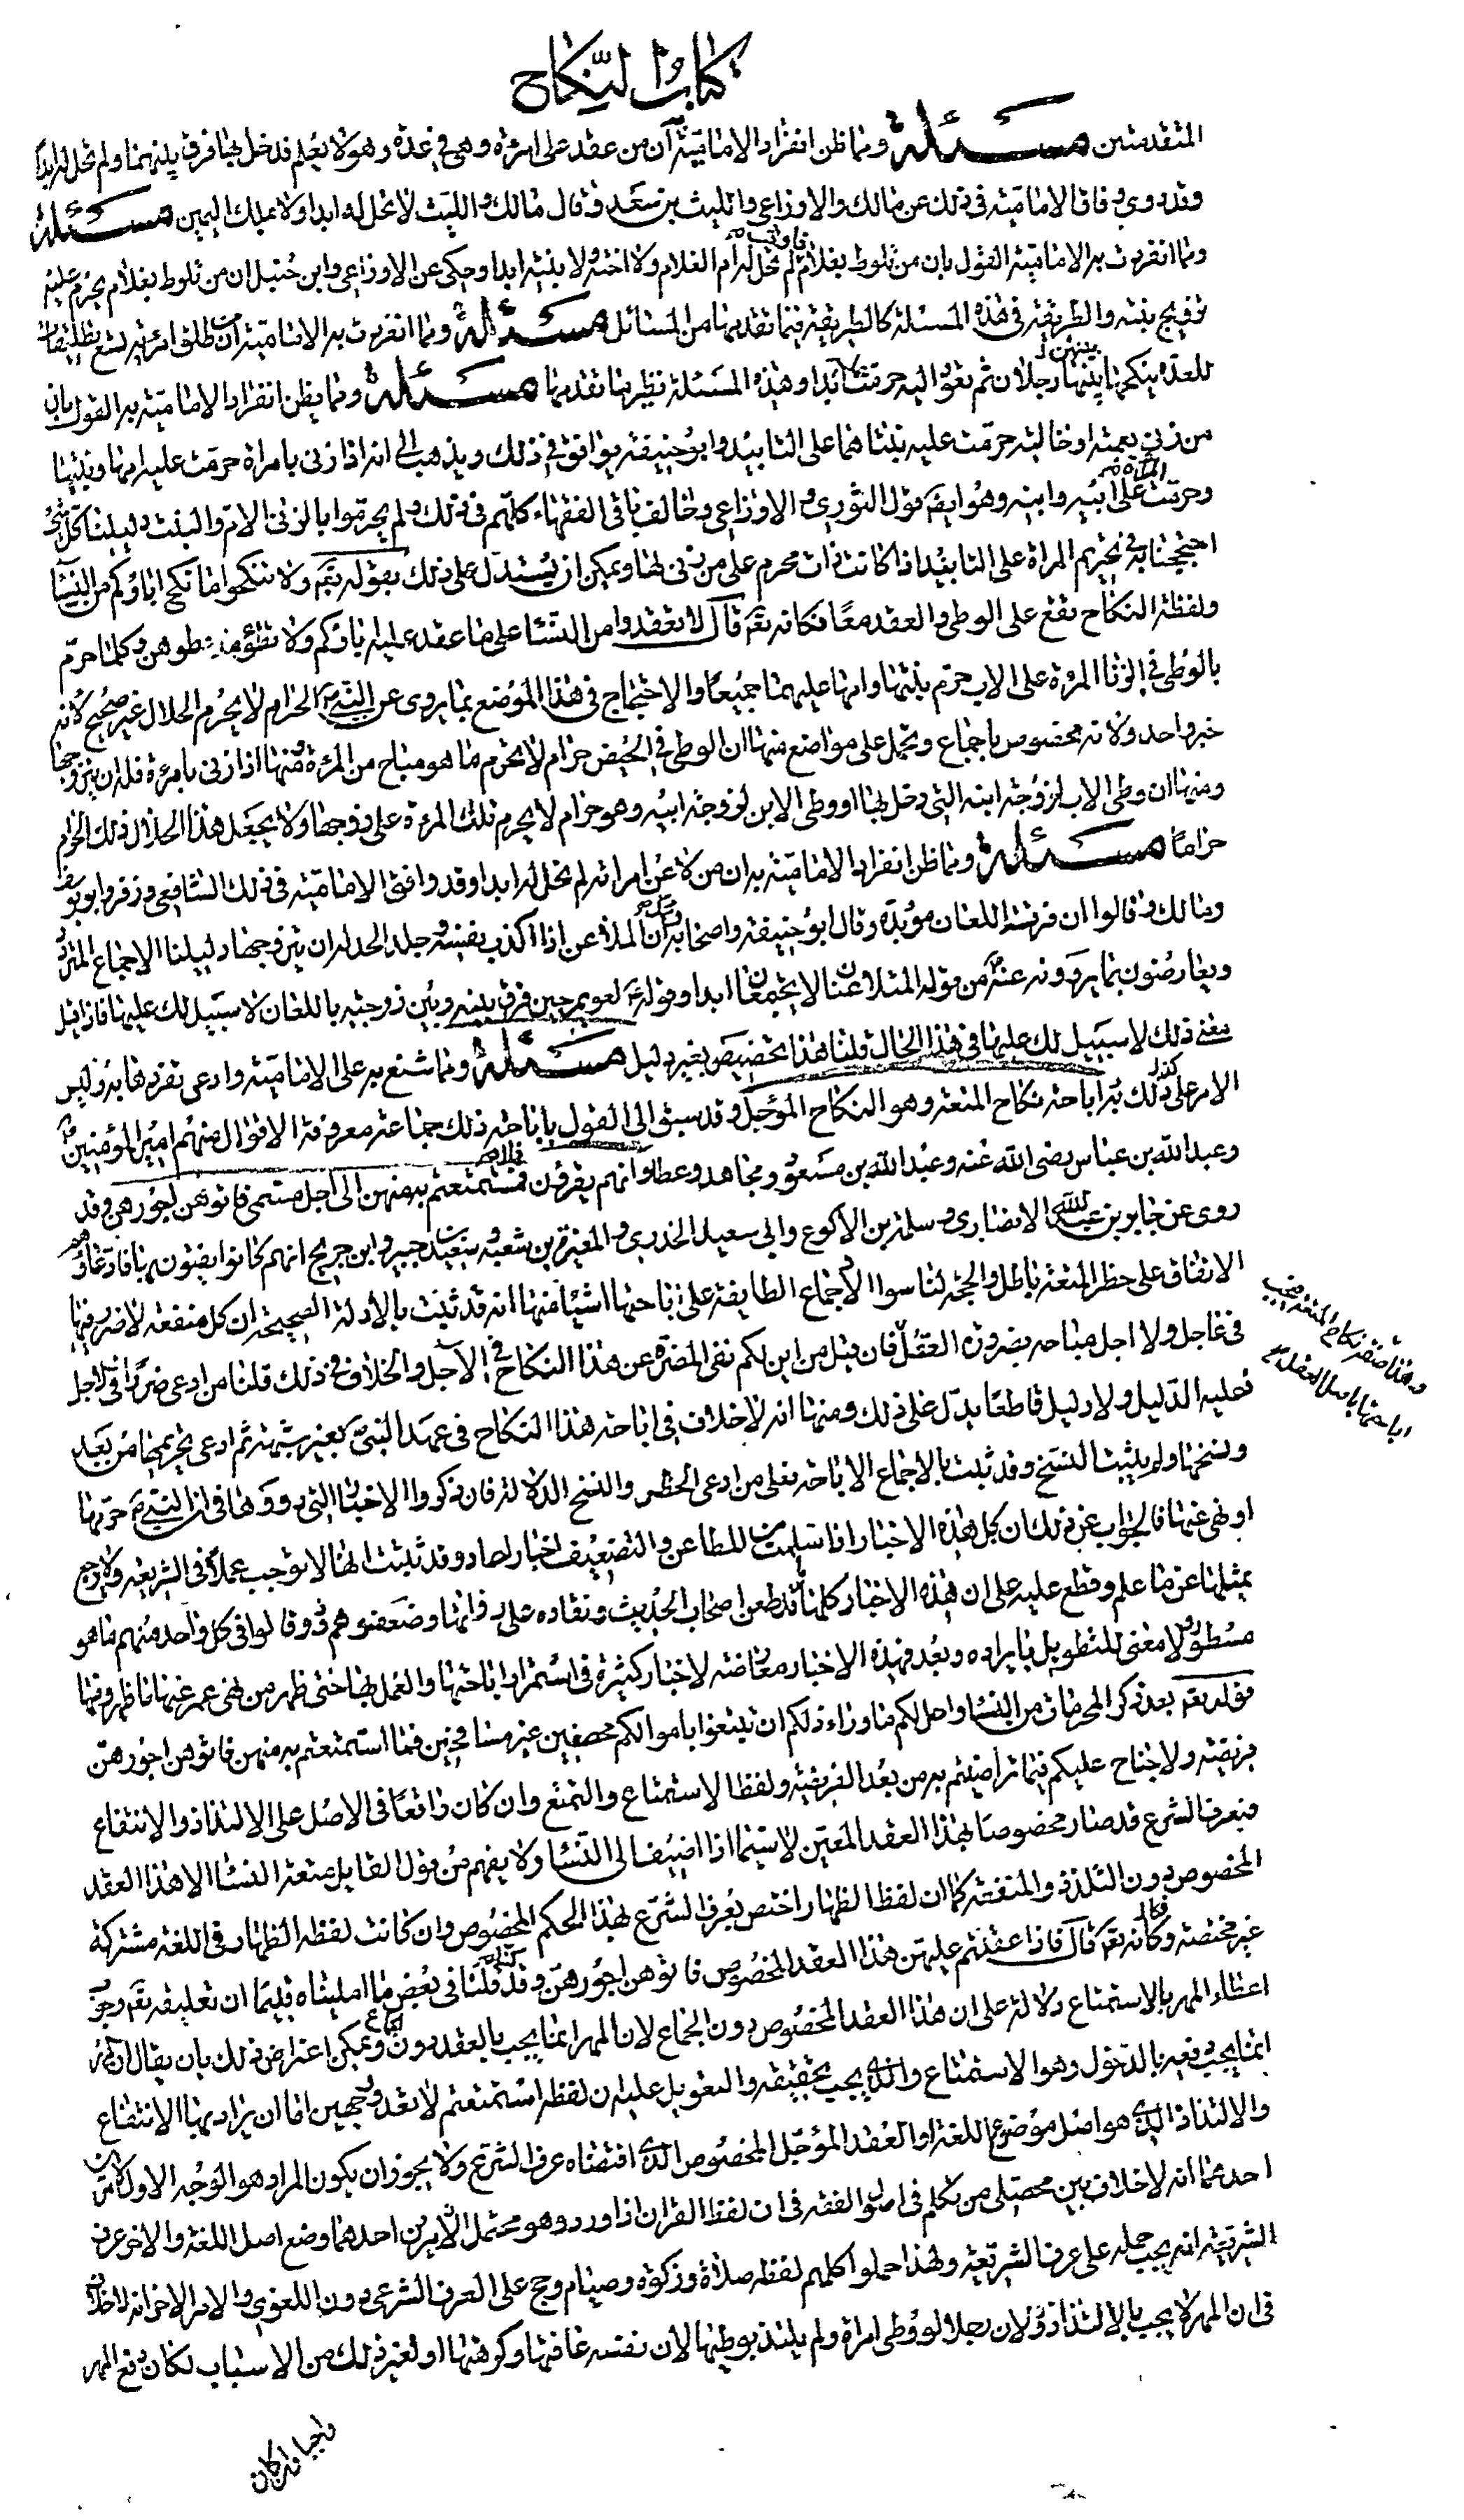 كتاب النكاح
المتقدمتين مسئلة ومما ظن انفراد الامامية به ان من عقد على امرءة وهي في عدة وهو لا يعلم فدخل بها فرق بينهما ولم تحل له ابدا
وقد روى وفاق الامامية في ذلك عن مالك والاوزاعي والليث بن سعد وقال مالك والليث لا تحل له ابدا ولا بملك اليمين مسئلة
ومما انفردت به الامامية القول بان من تلوط بغلام فاوقب لم تحل له ام الغلام ولا اخته ولا بنته ابدا وحكى عن الاوزاعي وابن حنبل ان من تلوط بغلام يحرم عليه
تزويج بنته والطريقة في هذه المسئلة كالطريقة فيما تقدمها من المسائل مسئلة ومما انفردت به الامامية ان من طلق امرئته تسع تطليقات
للعدة ينكحها بينهن رجلان ثم تعود اليه حرمت عليه ابدا وهذه المسئلة نظير ما تقدمها مسئلة ومما يظن انفراد الامامية به القول بان
من زنى بعمته او خالته حرمت عليه بنتاهما على التابيد وابو حنيفة يوافق في ذلك ويذهب الى انه اذا زنى بامراة حرمت عليه امها وبنتها
وحرمت المراة على ابيه وابنه وهو ايضا قول الثوري والاوزاعي وخالف باقي الفقهاء كلهم في ذلك ولم يحرموا بالزنى الام والبنت دليلنا كل شئ
احتججنا به في تحريم المراة على التابيد اذا كانت ذات محرم على من زنى بها ويمكن ان يستدل على ذلك بقوله تع ولا تنكحوا ما نكح اباؤكم من النساء
ولفظة النكاح تقع على الوطى والعقد معا فكانه تع قال لا تعقدوا من النسا على ما عقد عليه اباؤكم ولا تطؤ من وطوهن وكلما حرم
بالوطى في الزنا المرءة على الاب حرم بنتها وامها عليهما جميعا والاحتجاج في هذا الموضع بما يروى عن النبي الحرام لا يحرم الحلال غير صحيح لانه
خبر واحد ولانه مخصوص باجماع ويحمل على مواضع منها ان الوطى في الحيض حرام لا يحرم ما هو مباح من المرءة ومنها اذا زنى بامرءة فله ان يتزوجها
ومنها ان وطى الاب لزوجة ابنه التي دخل بها او وطى الابن لزوجة ابيه وهو حرام لا يحرم تلك المرءة على زوجها ولا يجعل هذا الحلال ذلك الحرام
حراما مسئلة ومما ظن انفراد الامامية به ان من لاعن امراته لم تحل له ابدا وقد وافق الامامية في ذلك الشافعي وزفر وابو يوسف
ومالك وقالوا ان فرقة اللعان مؤبدة وقال ابو حنيفة واصحابه ان الملاعن اذا اكذب نفسه وجلد الحد له ان يتزوجها دليلنا الاجماع المتردد
ويعارضون بما يروونه عنه من قوله المتلاعنان لا يجتمعان ابدا وقوله لعويمر حين فرق بينه وبين زوجته باللعان لا سبيل لك عليها فاذا قيل
معنى ذلك لا سبيل لك عليها في هذا الحال قلنا هذا تخصيص بغير دليل مسئلة ومما شنع به على الامامية وادعى تفردها به وليس
الامر على ذلك اباحة نكاح المتعة وهو النكاح المؤجل وقد سبق الى القول باباحة ذلك جماعة معروفة الاقوال منهم امير المؤمنين
وعبد الله بن عباس رضى الله عنه وعبد الله بن مسعود ومجاهد وعطا وانهم يقرؤن فما استمتعتم به منهن الى اجل مسمى فاتوهن اجورهن وقد
روى عن جابر بن عبد الله الانصاري وسلمة بن الاكوع وابي سعيد الخدري والمغيرة بن شعبة وسعيد بن جبير وابن جريح انهم كانوا يفتون بها فادعاؤهم
الاتفاق على حظر المتعة باطل والحجة لنا سوا الاجماع الطايفة على اباحتها اشيا منها انه قد ثبت بالادلة الصحيحة ان كل منفعة لا ضرر فيها
في عاجل ولا اجل مباحة بضرورة العقل فان قيل من اين لكم نفى المضرة عن هذا النكاح في الاجل والخلاف في ذلك قلنا من ادعى ضررا في الاجل
وهذه صفة نكاح المتعة فيجب اباحتها باصل العقل
فعليه الدليل ولا دليل قاطعا يدل على ذلك ومنها انه لا خلاف في اباحة هذا النكاح في عهد النبي بغير شبهة ثم ادعى تحريمها من بعد
ونسخها ولم يثبت النسخ وقد ثبت بالاجماع الاباحة فعلى من ادعى الحظر والنسخ الدلالة فان ذكروا الاخبار التي رووها في ان النبي حرمها
او نهى عنها فالجواب عن ذلك ان كل هذه الاخبار اذا سلمت من المطاعن والتضعيف اخبار احاد وقد ثبتت انها لا توجب عملا في الشريعة ولا يرجع
بمثلها عن ما علم وقطع عليه على ان هذه الاخبار كلها قد طعن اصحاب الحديث ونقاده على رواتها وضعفوهم وقالوا في كل واحد منهم ما هو
مسطور لا معنى للتطويل بايراده وبعد فهذه الاخبار معارضة لاخبار كثيرة في استمرار اباحتها والعمل بها حتى ظهر من نهى عمر عنها ما ظهر ومنها
قوله تع بعد ذكر المحرمات من النسا واحل لكم ما وراء ذلكم ان تبتغوا باموالكم محصنين غير مسافحين فما استمتعتم به منهن فاتوهن اجورهن
فريضة ولا جناح عليكم فيما تراضيتم به من بعد الفريضة ولفظ الاستمتاع والتمتع وان كان واقعا في الاصل على الالتذاذ والانتفاع
فبعرف الشرع قد صار مخصوصا بهذا العقد المعين لا سيما اذا اضيف الى النسا ولا يفهم من قول القايل متعة النسا الا هذا العقد
المخصوص دون التلذذ والمنفعة كما ان لفظ الظهار اختص بعرف الشرع بهذا الحكم المخصوص وان كانت لفظة الظهار في اللغة مشتركة
غير مختصة وكانه تع قال فاذا عقدتم عليهن هذا العقد المخصوص فاتوهن اجورهن وقد قلنا في بعض ما امليناه قديما ان تعليقه تع وجوب
اعطاء المهر بالاستمتاع دلالة على ان هذا العقد المخصوص دون الجماع لان المهر انما يجب بالعقد دون الجماع ويمكن اعتراض ذلك بان يقال ان المهر
انما يجب دفعه بالدخول وهو الاستمتاع والذي يجب تحقيقه والتعويل عليه ان لفظة استمتعتم لا تعدو وجهين اما ان يراد بها الانتفاع
والالتذاذ الذي هو اصل موضوع اللغة او العقد المؤجل المخصوص الذي اقتضاه عرف الشرع ولا يجوز ان يكون المراد هو الوجه الاول لامرين
احدهما انه لا خلاف بين محصلى من تكلم في اصول الفقه في ان لفظ القران اذا ورد وهو محتمل لامرين احدهما وضع اصل اللغة والاخر عرف
الشريعة انه يجب حمله على عرف الشريعة ولهذا حملوا كلهم لفظة صلاة وزكوة وصيام وحج على العرف الشرعي دون اللغوي والامر الاخر انه لا خلاف
في ان المهر لا يجب بالالتذاذ لان رجلا لو وطى امراة ولم يلتذ بوطيها لان نفسه عافتها وكرهتها او لغير ذلك من الاسباب لكان دفع المهر
واجبا وان كان